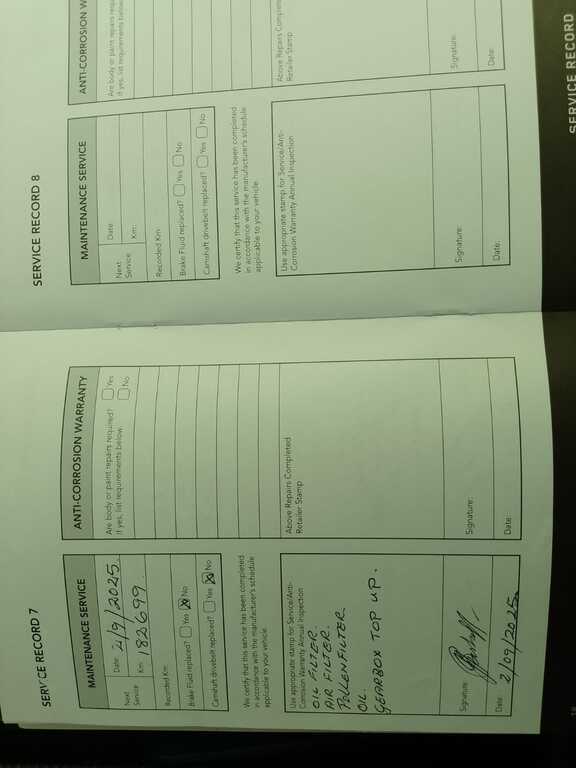 SERVICE RECORD 7
MAINTENANCE SERVICE
Next
Service
Date: 2/9/2025.
Km: 182699.
Recorded Km:
Brake Fluid replaced? Yes No
Camshaft drivebelt replaced? Yes No
We certify that this service has been completed
in accordance with the manufacturer's schedule
applicable to your vehicle.
Use appropriate stamp for Service/Anti-
Corrosion Warranty Annual Inspection
OIL FILTER.
AIR FILTER.
POLLEN FILTER.
OIL.
GEARBOX TOP UP.
Signature:
Date: 2/09/2025.
ANTI-CORROSION WARRANTY
Are body or paint repairs required? Yes
If yes, list requirements below. No
Above Repairs Completed
Retailer Stamp
Signature:
Date:
SERVICE RECORD 8
MAINTENANCE SERVICE
Next
Service
Date:
Km:
Recorded Km:
Brake Fluid replaced? Yes No
Camshaft drivebelt replaced? Yes No
We certify that this service has been completed
in accordance with the manufacturer's schedule
applicable to your vehicle.
Use appropriate stamp for Service/Anti-
Corrosion Warranty Annual Inspection
Signature:
Date:
ANTI-CORROSION W
Are body or paint repairs requ
If yes, list requirements below
Above Repairs Complete
Retailer Stamp
Signature:
Date:
SERVICE RECORD